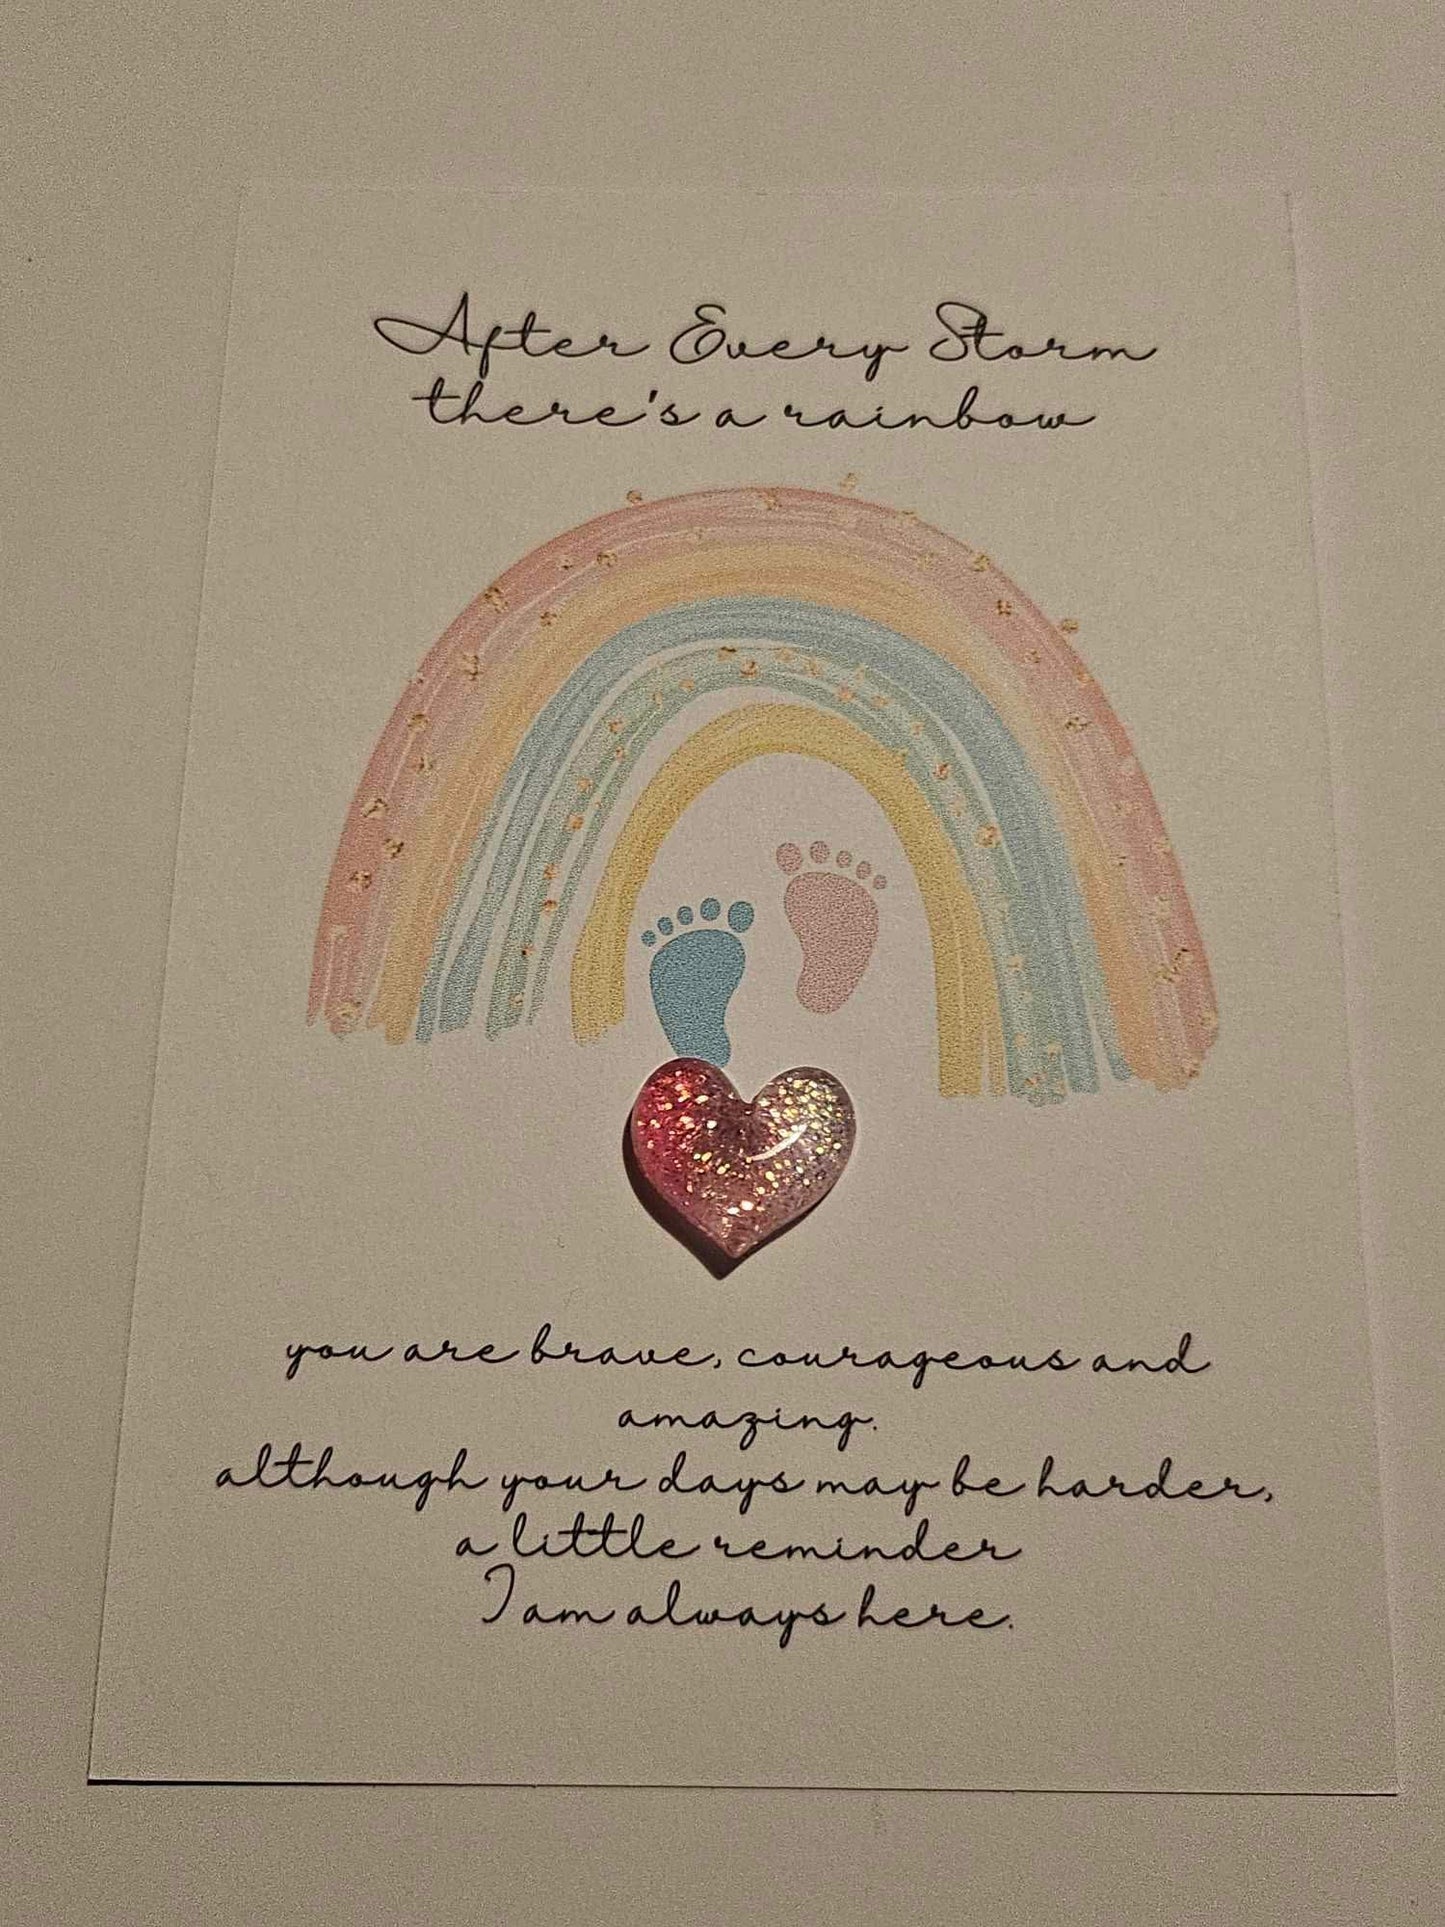 After Every Storm
there's a rainbow
you are brave, courageous and
amazing.
although your days may be harder,
a little reminder
I am always here.